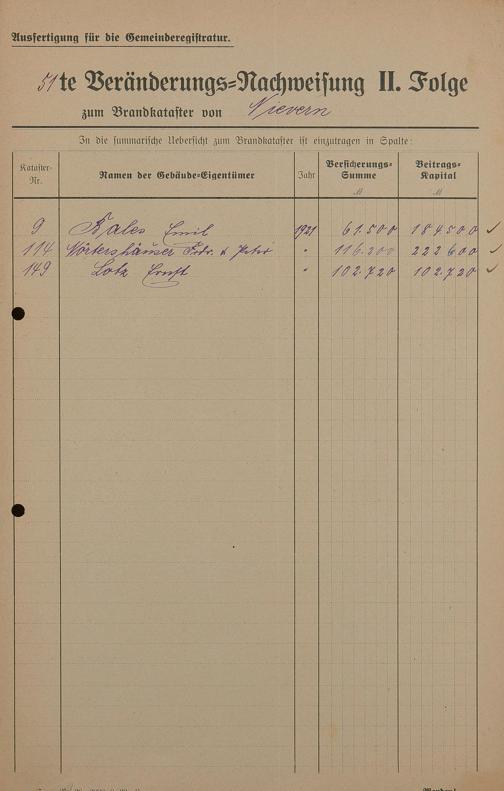 Ausfertigung für die Gemeinderegistratur.
51te Veränderungs-Nachweisung II. Folge
zum Brandkataster von Nievern
In die summarische Uebersicht zum Brandkataster ist einzutragen in Spalte:
Kataster-Nr. Namen der Gebäude-Eigentümer Jahr Versicherungs-Summe Beitrags-Kapital
M M
9 Kales Emil 1921 61.500 184500 ✓
114 Wörtershäuser & Peter " 116.200 222600 ✓
149 Lotz Ernst " 102.720 102.720 ✓